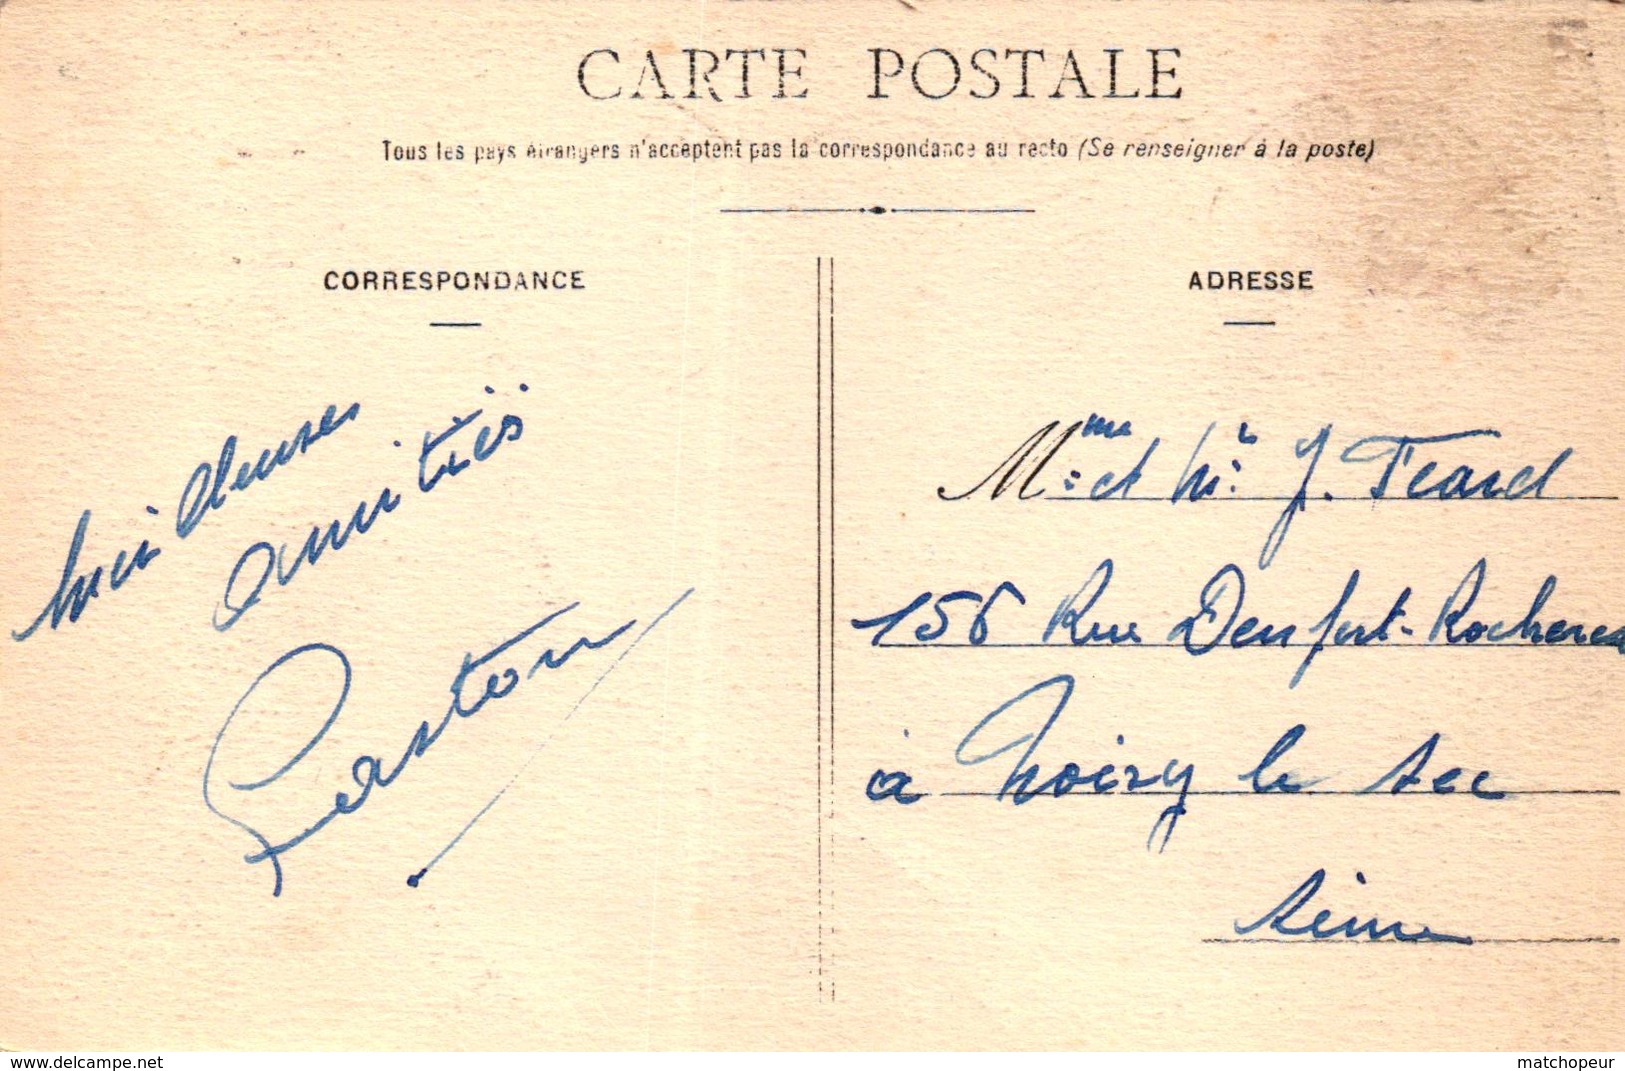 CARTE POSTALE
Tous les pays étrangers n'acceptent pas la correspondance au recto (Se renseigner à la poste)
CORRESPONDANCE
amitiés
Gaston
ADRESSE
Mme et Mr J. Feard
156 Rue Denfert-Rochereau
à Noisy le sec
Seine
www.delcampe.net
matchopeur